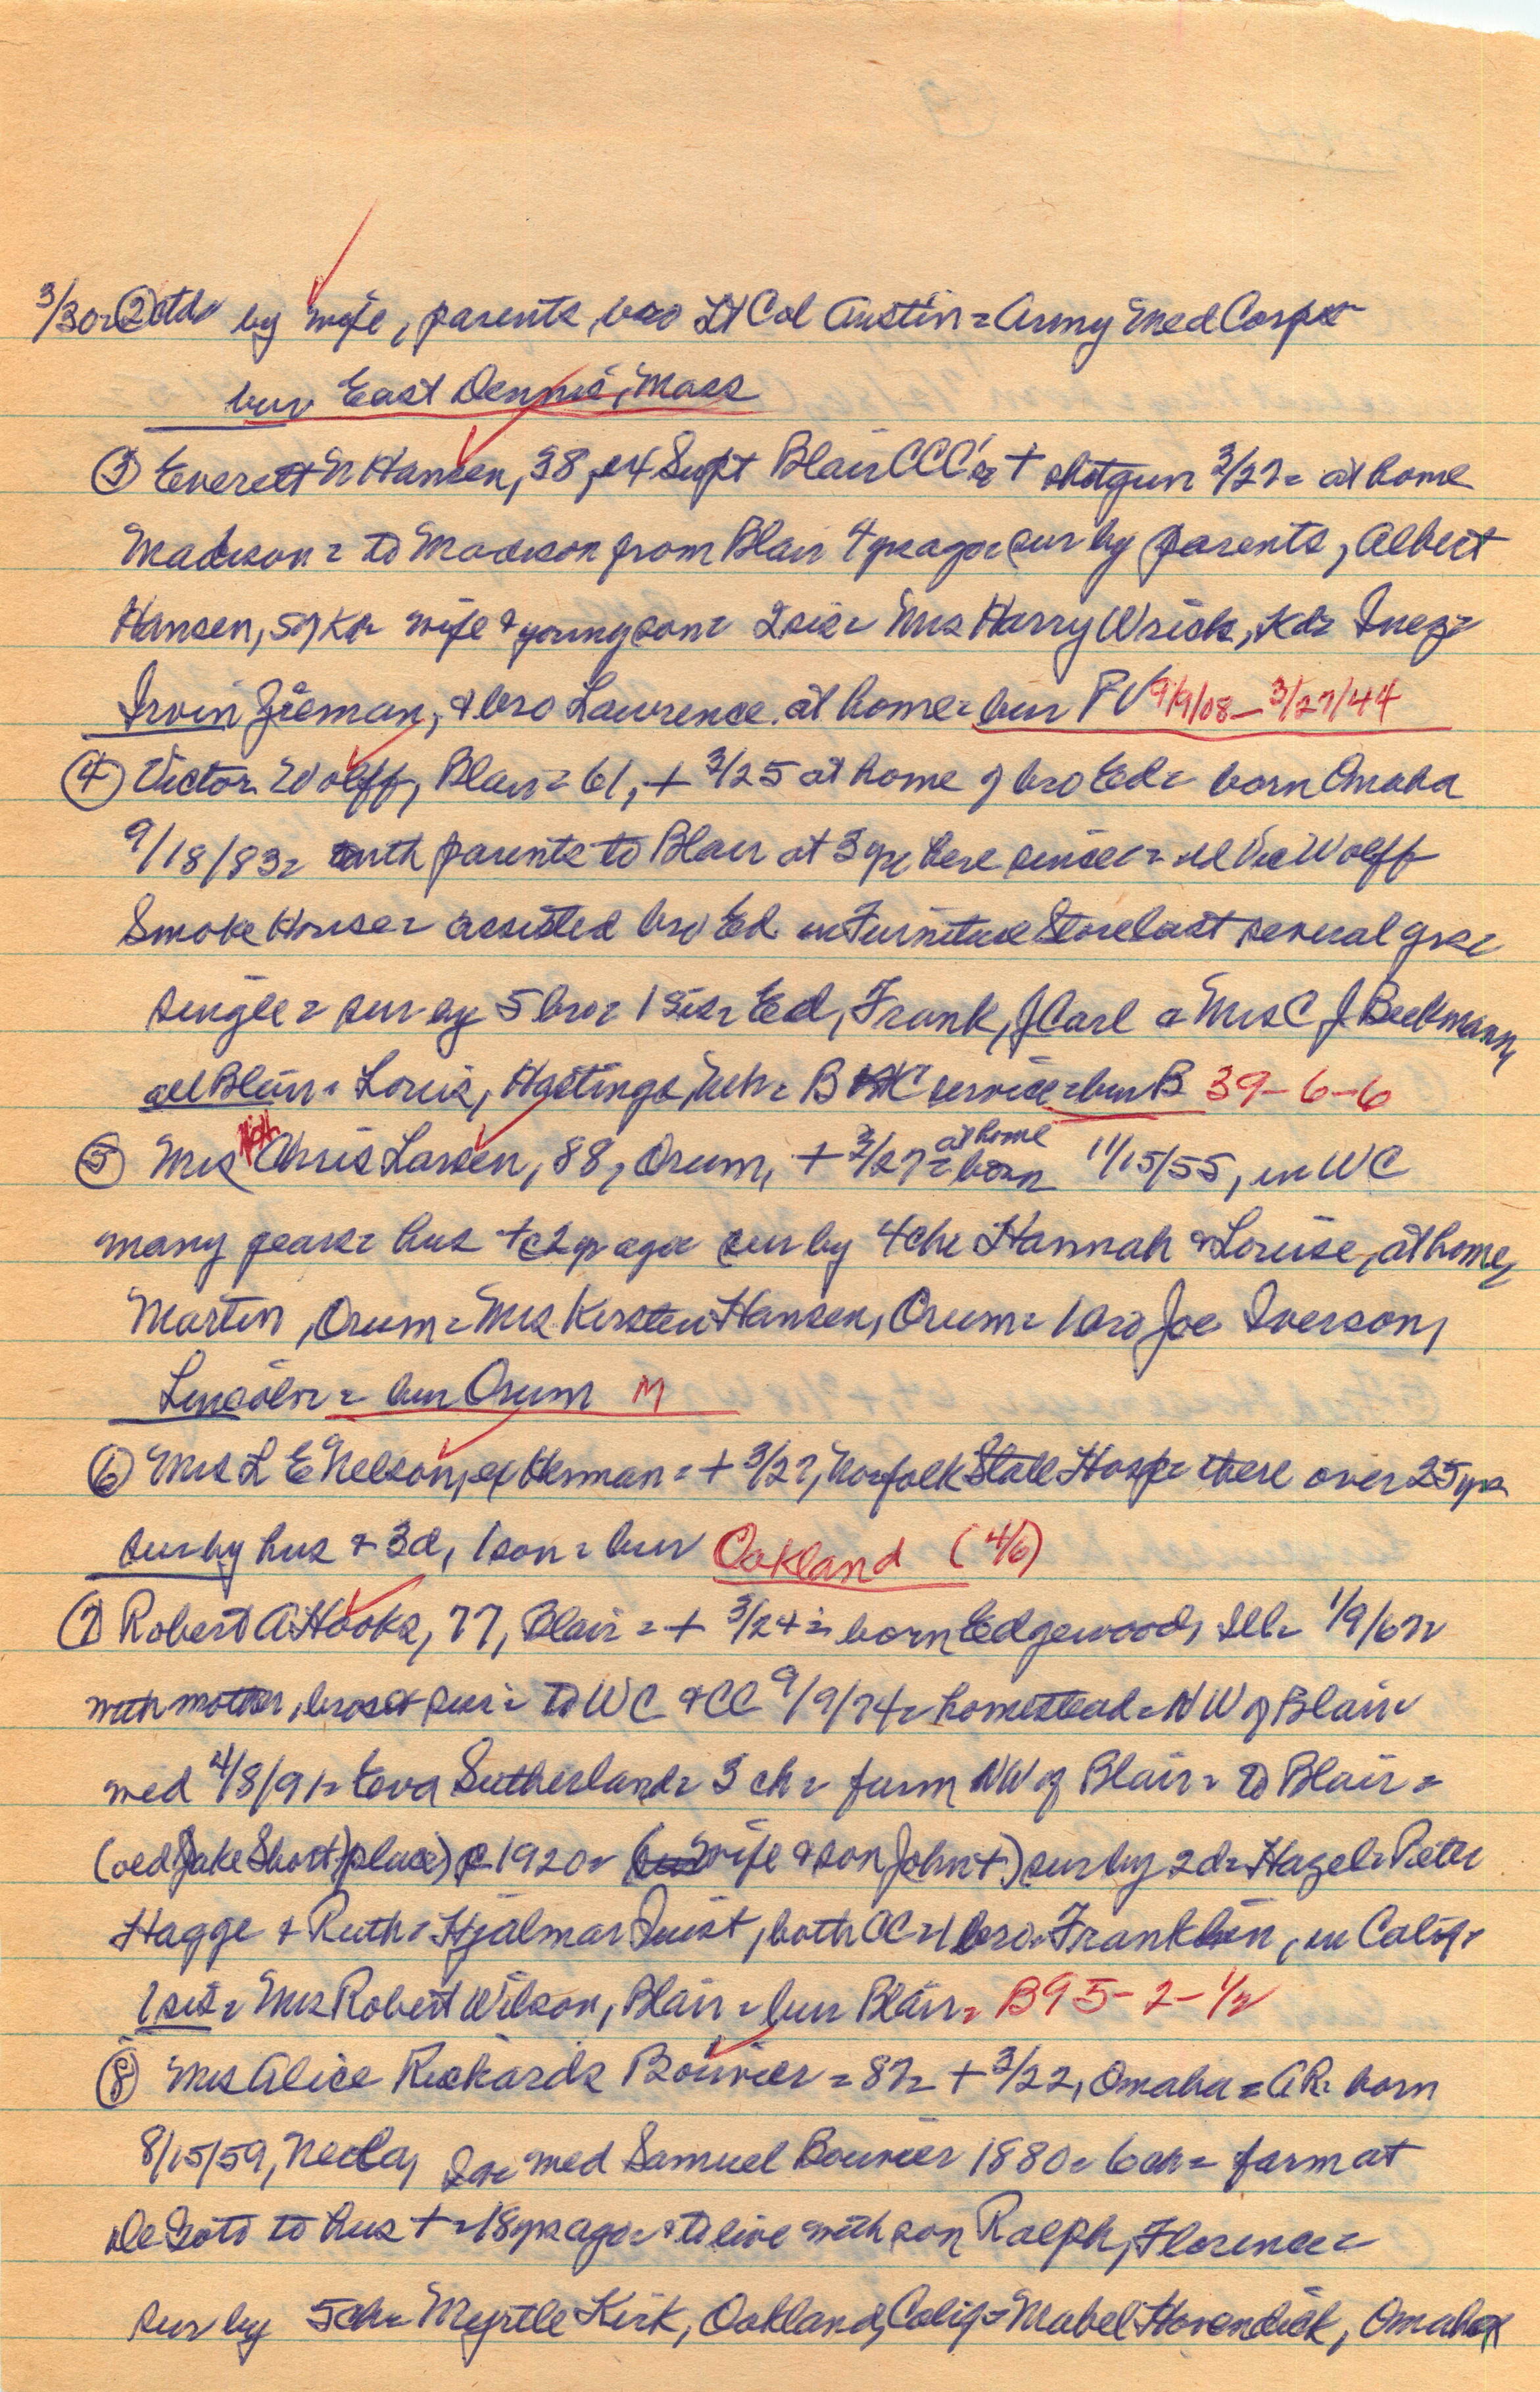 3/30 = ② ctd = by wife, parents, bro Lt Col Austin = Army Med Corps =
bur East Dennis, Mass
③ Everett N Hansen, 38, ex Supt Blair CCC's = + shotgun 3/27 = at home
Madison = to Madison from Blair 4 yrs ago = sur by parents, Albert
Hansen, Kd = wife & young son = 2 sis = Mrs Harry Wrich, Kd = Inez =
Irvin Zieman, & bro Lawrence at home = bur PV 9/9/08 – 3/27/44
④ Victor Wolff, Blair = 61, + 3/25 at home of bro Ed = born Omaha
9/18/83 = with parents to Blair at 3 yrs here since = Vic Wolff
Smoke House = assisted bro Ed in Furniture Store last several yrs =
single = sur by 5 bro = 1 sis = Ed, Frank, J Carl & Mrs C J Beckmann,
all Blair = Louis, Hastings, Neb = B service = bur B 39-6-6
⑤ Mrs Chris Larsen, 88, Orum, + 3/27 = at home born 11/15/55, in WC
many years = hus + 2 yr ago = sur by 4 ch = Hannah & Louise, at home,
Martin, Orum = Mrs Kersten Hansen, Orum = 1 bro Joe Iverson,
Lincoln = bur Orum M
⑥ Mrs L E Nelson, ex Herman = + 3/27, Norfolk State Hosp = there over 25 yrs
sur by hus & 3 d, 1 son = bur Oakland (4/6)
⑦ Robert A Hooks, 77, Blair = + 3/24 = born Edgewood, Ill = 1/9/67 =
with mother, bros & sis = to WC & CC 9/9/74 = homestead = NW of Blair =
med 4/8/91 = Eva Sutherland = 3 ch = farm NW of Blair = to Blair =
(old Jake Short place) c 1920 = (wife & son John +) sur by 2 d = Hazel = Pieter
Hagge & Ruth = Hjalmar Quist, both CC = 1 bro = Franklin, in Calif =
1 sis = Mrs Robert Wilson, Blair = bur Blair = B 95-2-1/2
⑧ Mrs Alice Rickards Bouvier = 87 = + 3/22, Omaha = AR = born
8/15/59, Neola, Ia = med Samuel Bouvier 1880 = 6 ch = farm at
De Soto to hus + = 18 yrs ago = & to live with son Ralph, Florence =
sur by 5 ch = Myrtle Kirk, Oakland, Calif = Mabel Hovendick, Omaha